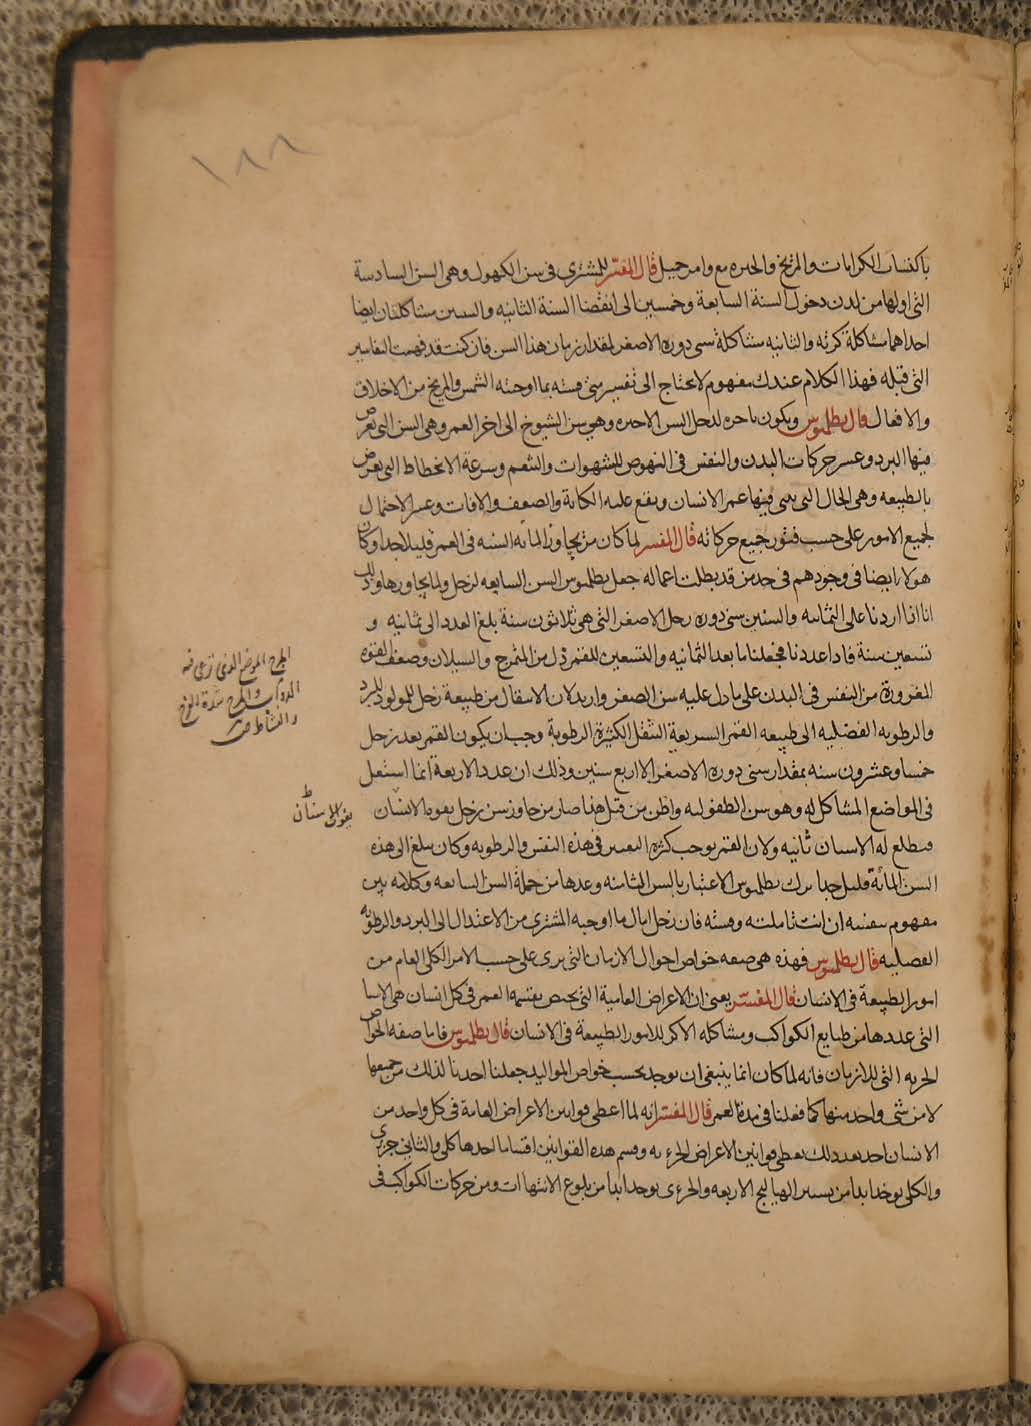 ١٨٨
باكتساب الكرامات والمدح والخيره مع وامر جميل قال المفسر للمشترى فى سن الكهول وهى السن السادسة
التى اولها من لدن دخول السنة السابعة وخمسين الى انقضا السنة الثانيه والستين مشاكلتان ايضا
احداهما مشاكلة كرته والثانيه مشاكلة سنى دوره الاصغر لمقدار زمان هذا السن فان كنت قد فهمت التفاسير
التى قبله فهذا الكلام عندك مفهوم لا يحتاج الى تفسير سنى قسته بما اوجبته الشمس والمريخ من الاخلاق
والافعال قال بطلميوس ويكون باخره لزحل السن الاخيره وهى سن الشيوخ الى اخر العمر وهى السن التى يعرض
فيها البرد وعسر حركات البدن والنفس فى النهوض للشهوات والتنعم وسرعة الانحطاط التى يعرض
بالطبيعه وهى الحال التى فيها عمر الانسان ويقع عليه الكابة والضعف والافات وعسر الاحتمال
لجميع الامور على حسب فتور جميع حركاته قال المفسر لما كان من يجاوز المائه السنه فى العمر قليلا جدا وكان
هولا ايضا فى وجودهم فى حد من قد بطلت اعماله جعل بطلميوس السن السابعه لزحل ولما يجاورها وذلك
انا اذا زدنا على الثمانيه والستين سنى دوره زحل الاصغر التى هى ثلاثون سنة بلغ العدد الى ثمانيه و
تسعين سنة فاذا عددنا فجعلنا ما بعد الثمانيه والتسعين للقمر دل من المرح والسيلان وضعف القوه
المقرونة من النفس فى البدن على ما دل عليه سن الصغر وايضا لان الانتقال من طبيعة زحل للمولود للبرد
والرطوبه الفضليه الى طبيعه القمر السريعة التنقل الكثيرة الرطوبة وجب ان يكون القمر بعد زحل
خمسا وعشرون سنه بمقدار سنى دوره الاصغر الا اربع سنين وذلك ان عدد الاربعة انما استعمل
فى المواضع المشاكل له وهو سن الطفوليه واظن من قبل هذا صار من جاوز سن زحل بقوه الانسان
فيطلع له الاسنان ثانيه ولان القمر يوجب كثره التغيير فى هذه النفس والرطوبه وكان يبلغ الى هذه
السن المائة قليل جدا ترك بطلميوس الاعتبار بالسن الثامنه وعدها من جملة السن السابعه وكلامه بين
مفهوم بنفسه ان انت تاملته وقسته فان زحل امال ما اوجبه المشترى من الاعتدال الى البرد والرطوبه
الفضليه قال بطلميوس فهذه هى صفه خواص احوال الازمان التى يرى على حسب الامر الكلى العام من
امور الطبيعة فى الانسان قال المفسر يعنى ان الاعراض العامية التى يختص بقسمه العمر فى كل انسان هى الاسنا
التى عددها من طبايع الكواكب ومشاكله الاكر للامور الطبيعة فى الانسان قال بطلميوس فاما صفه الخواص
الجزيه التى للازمان فانه لما كان انما ينبغى ان يوجد بحسب خواص المواليد جعلنا احدنا لذلك من جميعها
لا من شى واحد منها كما فعلنا فى مدة العمر قال المفسر انه لما اعطى قوانين الاعراض العامة فى كل واحد من
الانسان احد بعد ذلك يعطى قوانين الاعراض الجزءيه وقسم هذه القوانين اقساما احدها كلى والثانى جزءى
والكلى يوخذ ابدا من تسيير الهياليج الاربعه والجزءى يوخذ ابدا من بلوغ الانتهاات ومن حركات الكواكب فى
المرج الموضع الذى ترعى فيه
الدواب والمرح شدة الفرح
والنشاط ص